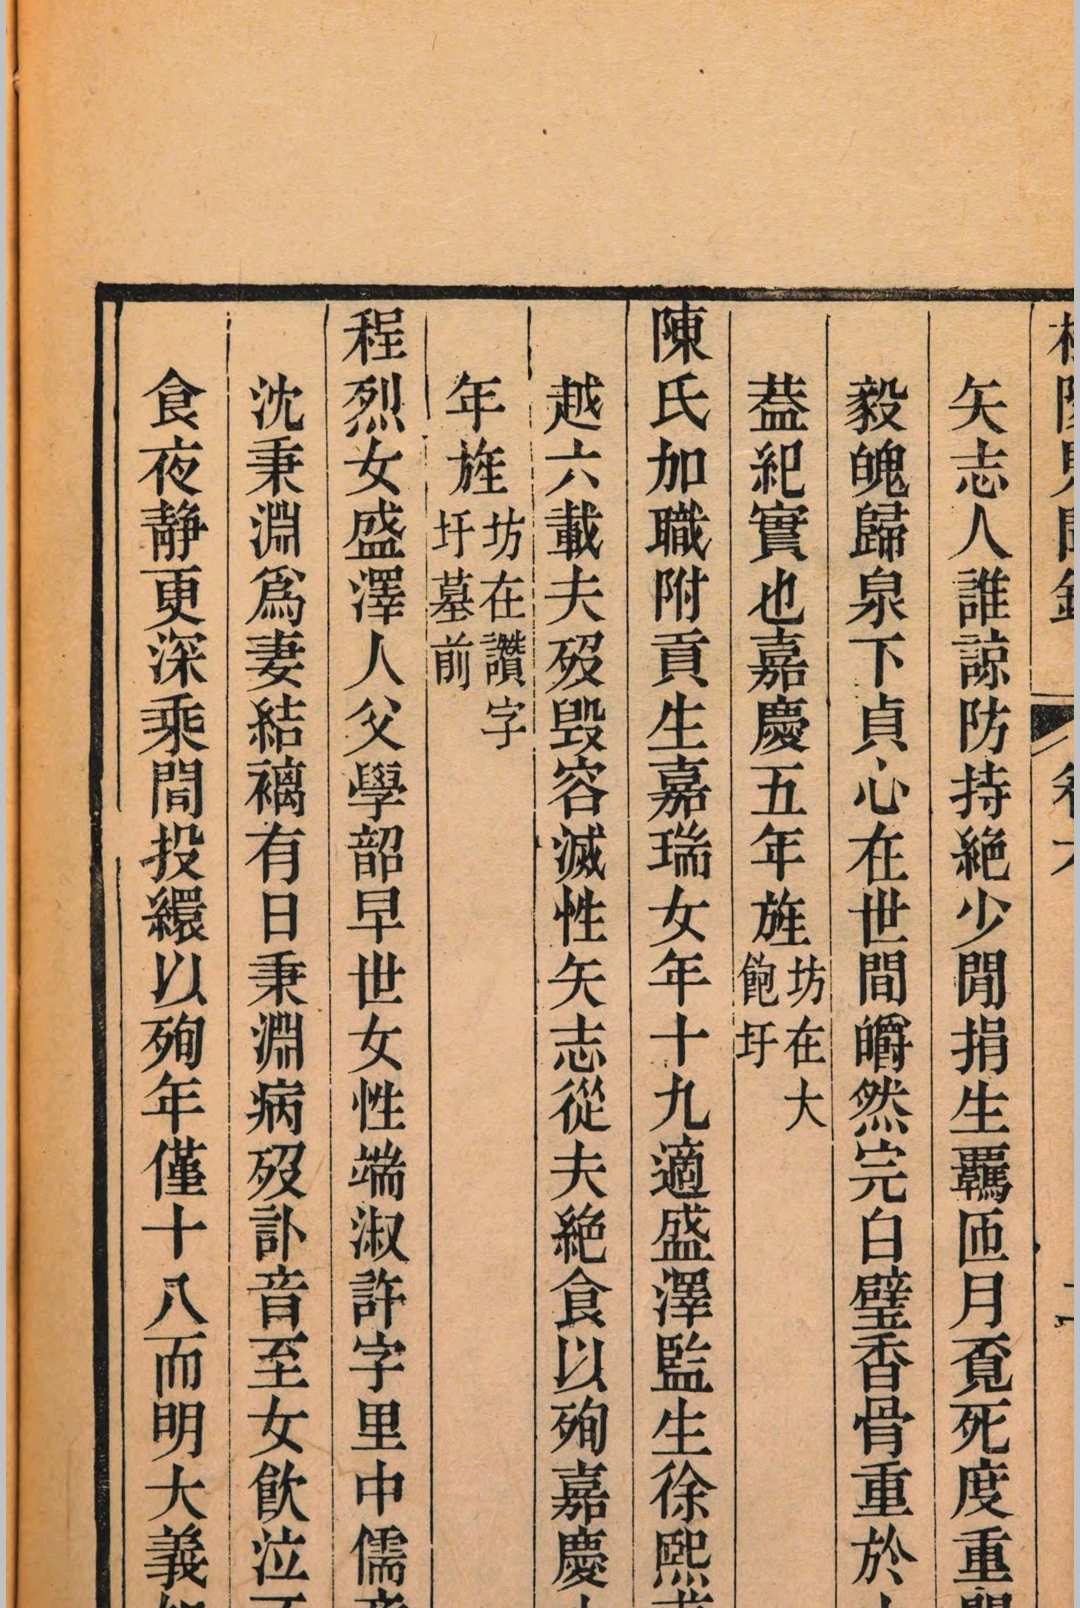 矢志人誰諒防持絕少閒捐生羈匝月覔死度重
毅魄歸泉下貞心在世間皭然完白璧香骨重於
葢紀實也嘉慶五年旌坊在大飽圩
陳氏加職附貢生嘉瑞女年十九適盛澤監生徐熙
越六載夫歿毀容滅性矢志從夫絕食以殉嘉慶
年旌坊在讚字圩墓前
程烈女盛澤人父學韶早世女性端淑許字里中儒
沈秉淵爲妻結褵有日秉淵病歿訃音至女飮泣
食夜靜更深乘間投繯以殉年僅十八而明大義